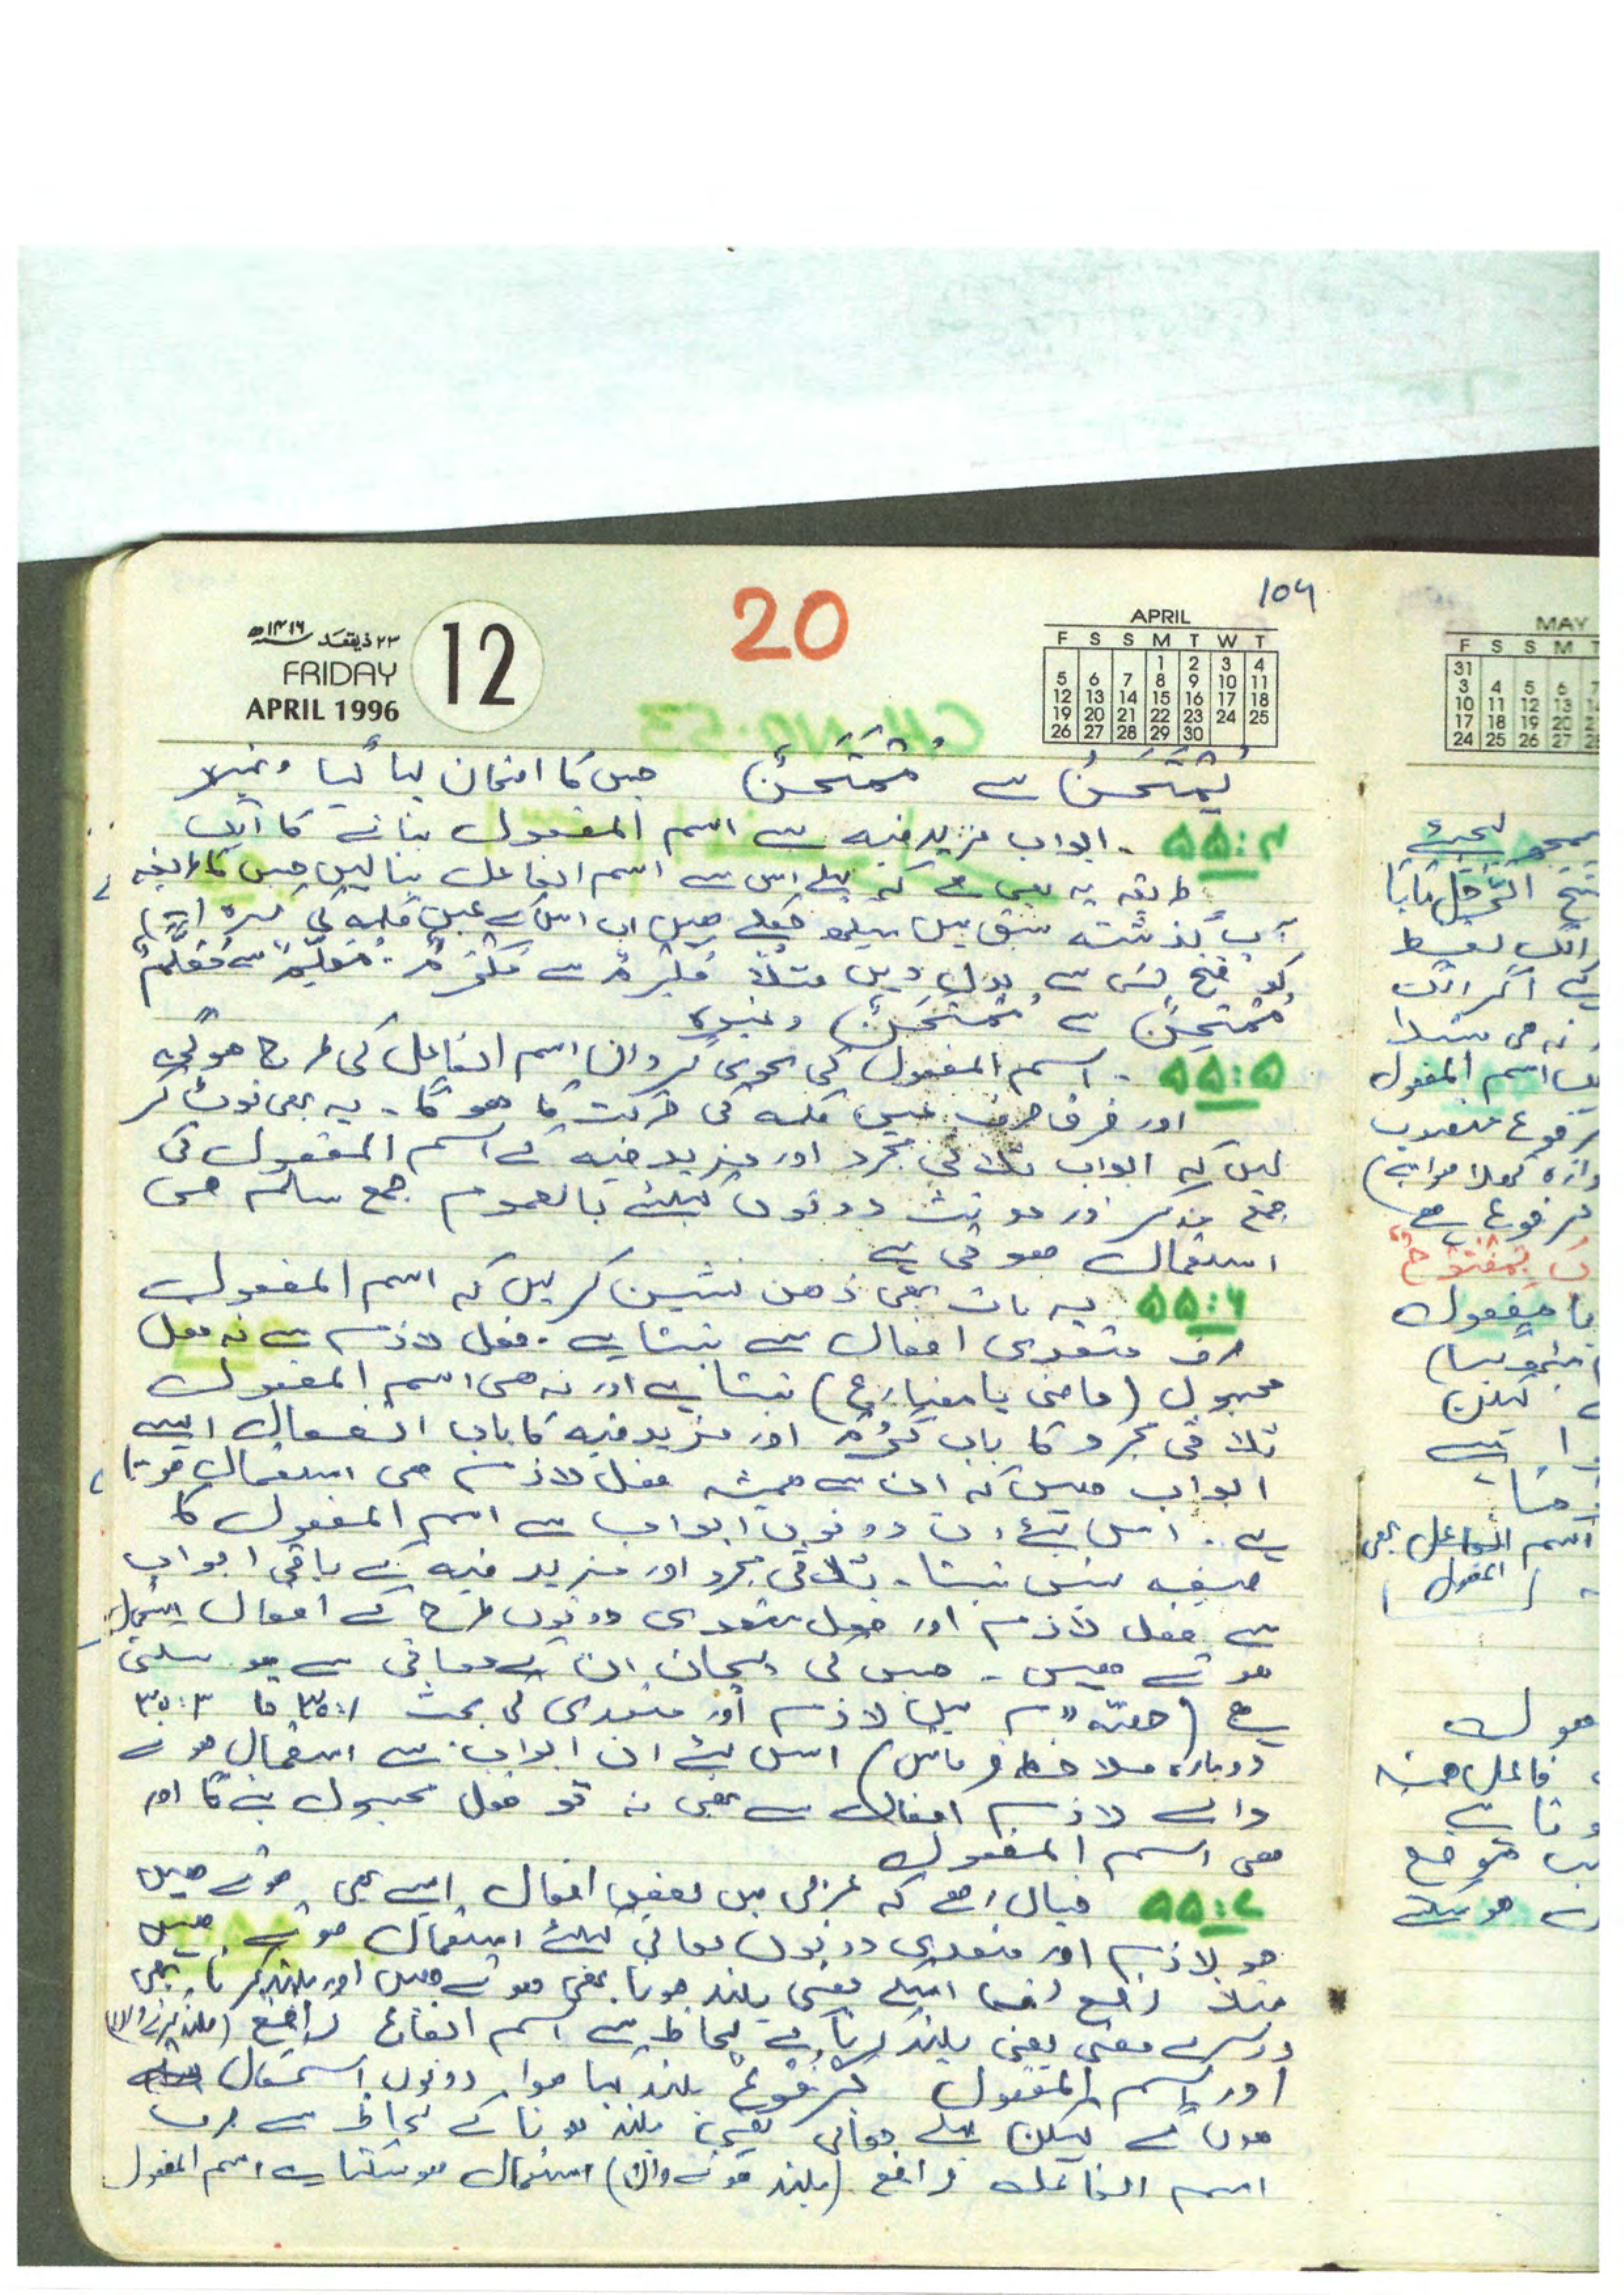 104
20
۲۳ ذیقعد ۱۴۱۶ھ
FRIDAY
APRIL 1996
12
APRIL
F S S M T W T
1 2 3 4
5 6 7 8 9 10 11
12 13 14 15 16 17 18
19 20 21 22 23 24 25
26 27 28 29 30
یُمْتَحَنُ سے مُمْتَحَنٌ جس کا امتحان لیا گیا وغیرہ
۵۵:۴ ۔ ابواب مزید فیہ سے اسم المفعول بنانے کا ایک
طریقہ یہ بھی ہے کہ پہلے اس سے اسم الفاعل بنا لیں جس کا طریقہ
آپ گذشتہ سبق میں سیکھ چکے ہیں اب اس کے عین کلمہ کی کسرہ
کو فتح سے بدل دیں مثلاً مُکْرِمٌ سے مُکْرَمٌ ۔ مُعَلِّمٌ سے مُعَلَّمٌ
مُمْتَحِنٌ سے مُمْتَحَنٌ وغیرہ
۵۵:۵ ۔ اسم المفعول کی نحوی گردان اسم الفاعل کی طرح ہوگی
اور فرق صرف عین کلمہ کی حرکت کا ہو گا ۔ یہ بھی نوٹ کر
لیں کہ ابواب ثلاثی مجرد اور مزید فیہ کے اسم المفعول کی
جمع مذکر اور مونث دونوں کیلئے بالعموم جمع سالم ہی
استعمال ہوتی ہے
۵۵:۶ یہ بات بھی ذھن نشین کر لیں کہ اسم المفعول
صرف متعدی افعال سے بنتا ہے ۔ فعل لازم سے نہ فعل
مجہول (ماضی یا مضارع) بنتا ہے اور نہ ھی اسم المفعول
ثلاثی مجرد کا باب کَرُمَ اور مزید فیہ کا باب انفعال ایسے
ابواب ہیں کہ ان سے ہمیشہ فعل لازم ھی استعمال ہوتا
ہے ۔ اس لئے ان دونوں ابواب سے اسم المفعول کا
صیغہ نہیں بنتا ۔ ثلاثی مجرد اور مزید فیہ کے باقی ابواب
سے فعل لازم اور فعل متعدی دونوں طرح کے افعال استعمال
ہوتے ہیں ۔ جس کی پہچان ان کے معانی سے ہو سکتی
ہے (حصّہ دوم میں لازم اور متعدی کی بحث ۳۵:۱ تا ۳۵:۳
دوبارہ ملاحظہ فرمائیں) اس لئے ان ابواب سے استعمال ہونے
والے لازم افعال سے بھی نہ تو فعل مجہول بنے گا اور
ھی اسم المفعول
۵۵:۷ خیال رہے کہ عربی میں بعض افعال ایسے بھی ہوتے ہیں
جو لازم اور متعدی دونوں معانی کیلئے استعمال ہوتے ہیں
مثلاً رَفَعَ اسکے معنی بلند ہونا بھی ہوتے ہیں اور بلند کرنا بھی
دوسرے معنی یعنی بلند کرنا کے لحاظ سے اسم الفاعل رَافِعٌ (بلند کرنے والا)
اور اسم المفعول مَرْفُوْعٌ بلند کیا ہوا، دونوں استعمال
ہوں گے لیکن پہلے معانی یعنی بلند ہونا کے لحاظ سے صرف
اسم الفاعل رافع (بلند ہونے والا) استعمال ہو سکتا ہے اسم المفعول
MAY
F S S M T
31
3 4 5 6 7
10 11 12 13
17 18 19 20
24 25 26 27
اسم المفعول
مرفوع
مفعول
لیکن
اسم الفاعل بھی
المفعول
فاعل